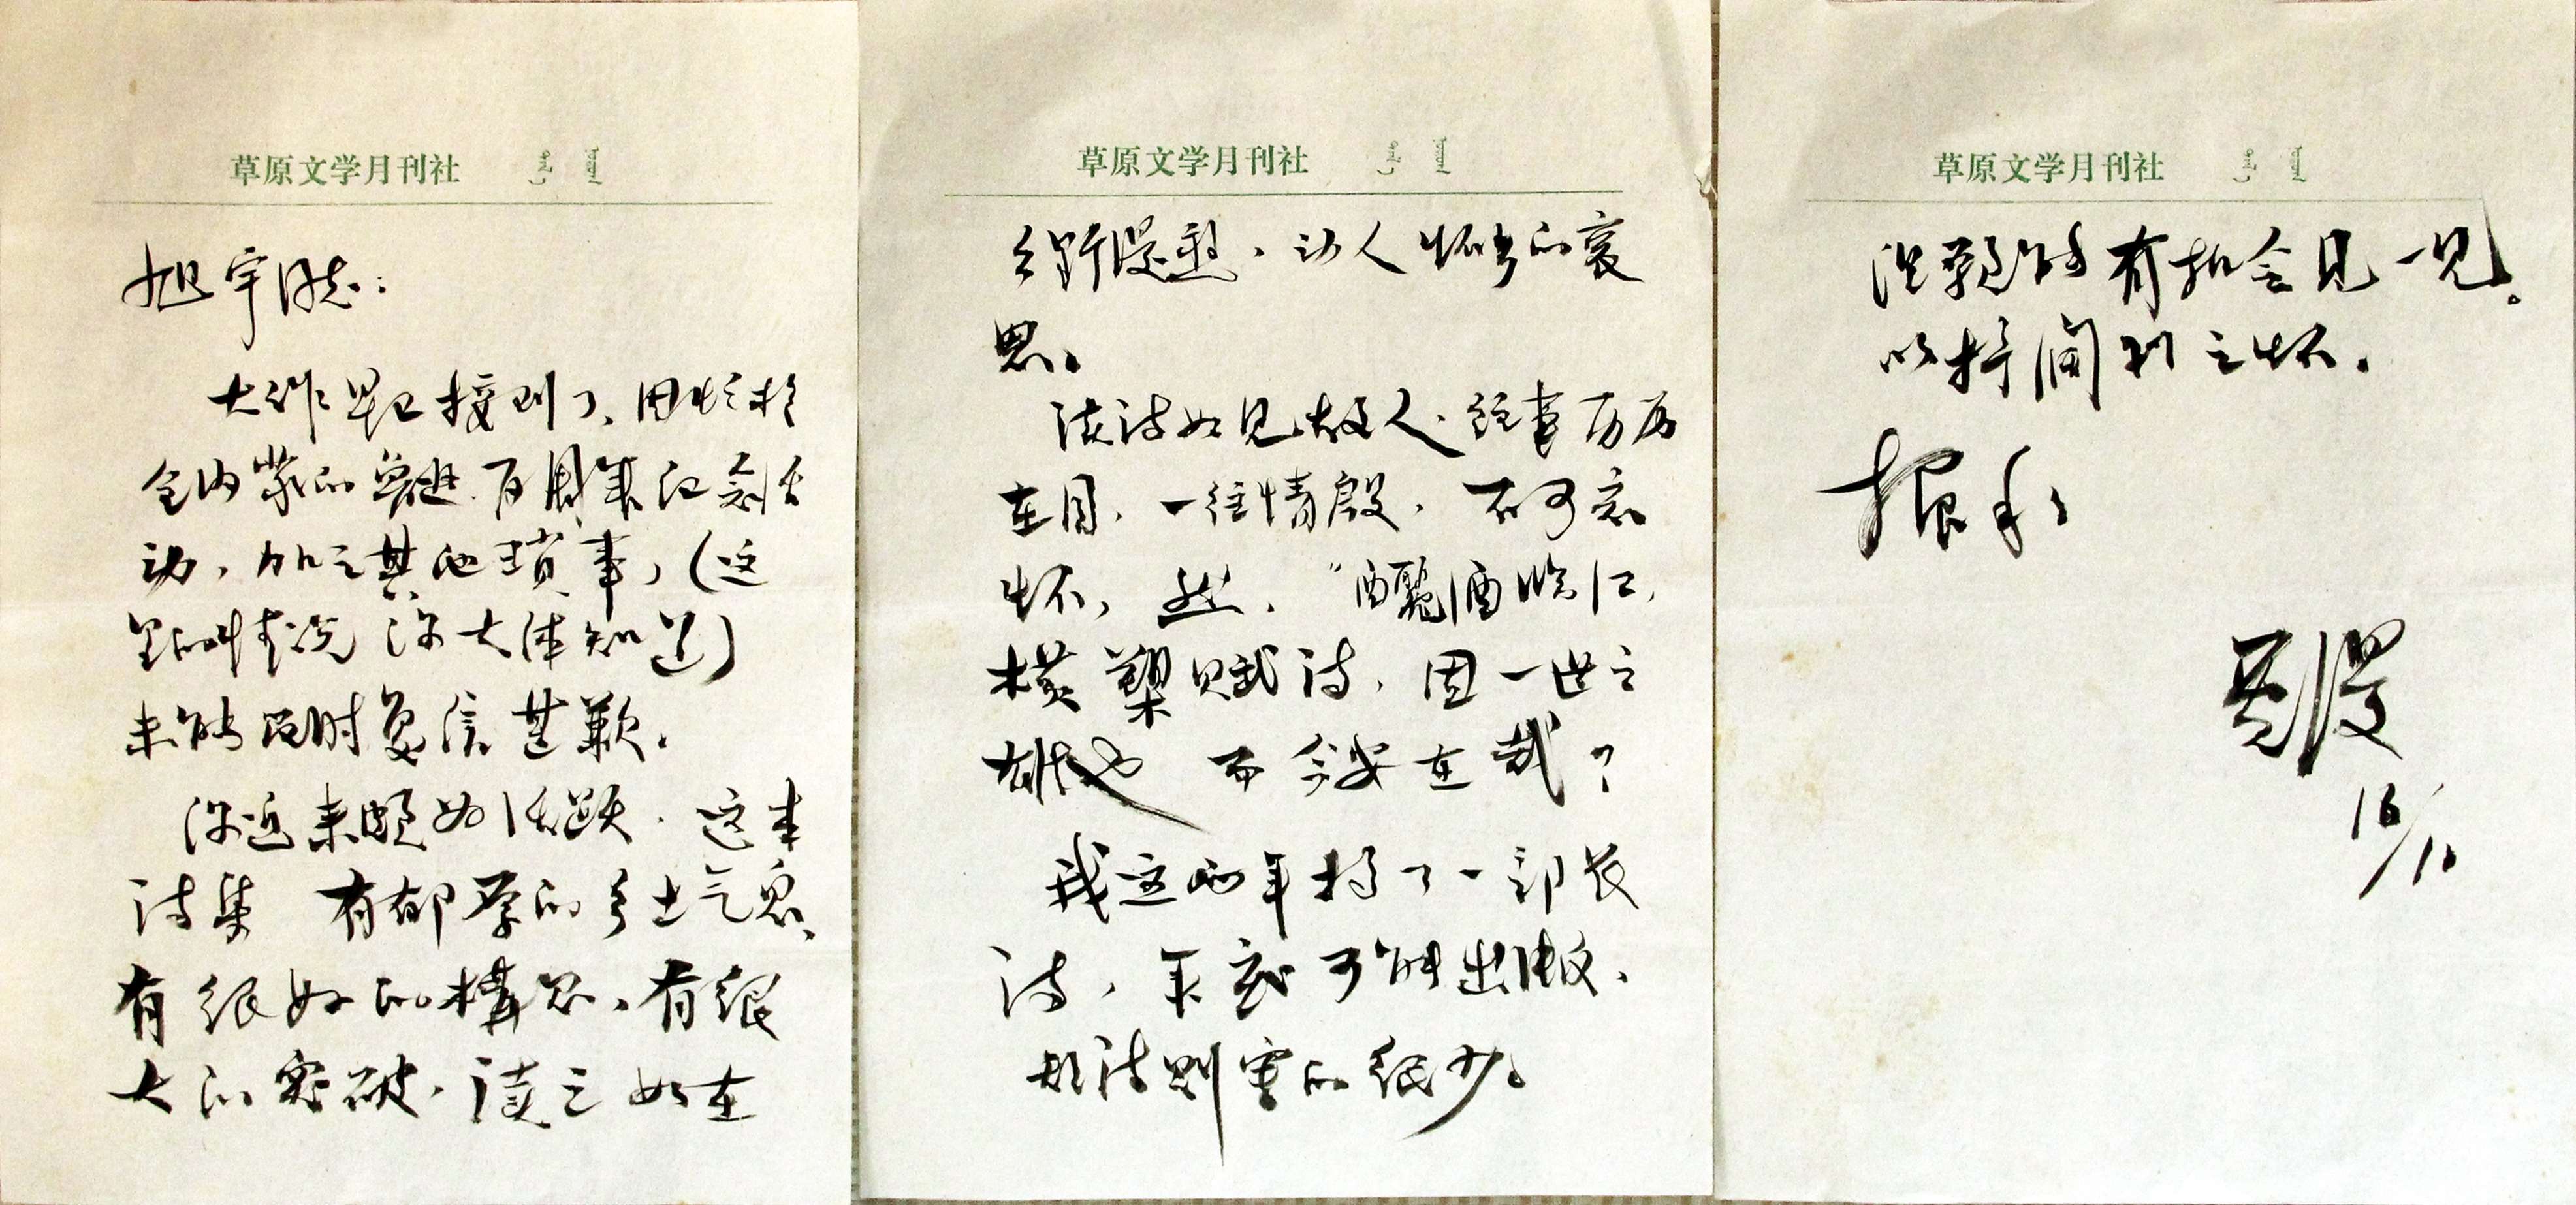 草原文学月刊社
旭宇同志：
大作早已接到了，因忙于
全内蒙的 百周年纪念活
动，加之其他琐事，（这
里的情况你大体知道）
未能及时复信甚歉。
你近来颇为活跃，这本
诗集 有郁厚的乡土气息，
有很好的構思，有很
大的突破，读之如在
草原文学月刊社
乡野漫遊，动人怀乡的哀
思。
读诗如见故人，往事历历
在目，一往情殷，不可忘
怀，然，“酾酒临江，
横槊赋诗，固一世之
雄也 而今安在哉？
我这两年搞了一部长
诗，年底可能出版，
短诗则写的很少。
草原文学月刊社
但愿能有机会见一见。
以抒阔别之怀。
握手
贾漫
16/10